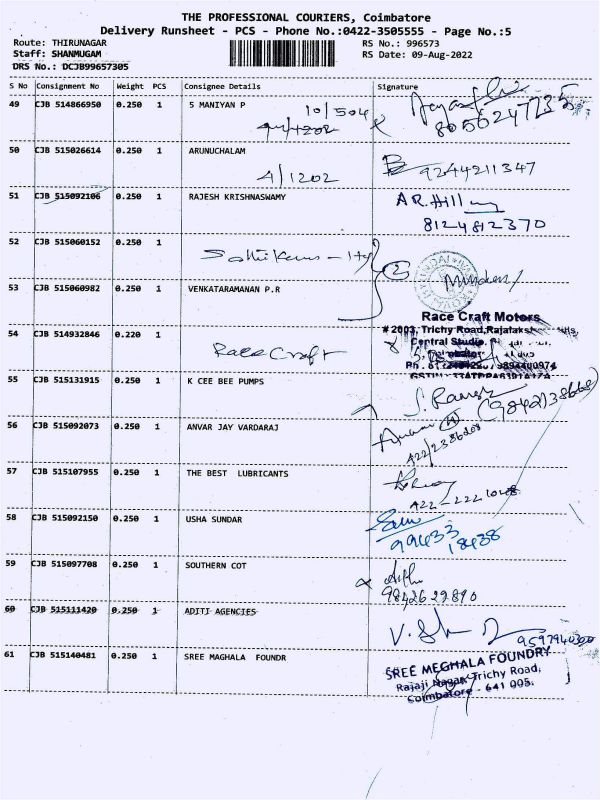 THE PROFESSIONAL COURIERS, Coimbatore
Delivery Runsheet - PCS - Phone No.:0422-3505555 - Page No.:5
Route: THIRUNAGAR
RS No.: 996573
Staff: SHANMUGAM
RS Date: 09-Aug-2022
DRS No.: DCJB99657305
S No Consignment No Weight PCS Consignee Details Signature
49 CJB 514866950 0.250 1 S MANIYAN P
10/504
8056247735
50 CJB 515026614 0.250 1 ARUNUCHALAM
4/1202
9244211347
51 CJB 515092106 0.250 1 RAJESH KRISHNASWAMY
8124812370
52 CJB 515060152 0.250 1
53 CJB 515060982 0.250 1 VENKATARAMANAN P.R
Race Craft Motors
# 2003, Trichy Road,
Central Studio,
54 CJB 514932846 0.220 1
Race Craft
55 CJB 515131915 0.250 1 K CEE BEE PUMPS
S. Ramesh
56 CJB 515092073 0.250 1 ANVAR JAY VARDARAJ
57 CJB 515107955 0.250 1 THE BEST LUBRICANTS
58 CJB 515092150 0.250 1 USHA SUNDAR
99433
18438
59 CJB 515097708 0.250 1 SOUTHERN COT
9842629890
60 CJB 515111420 0.250 1 ADITI AGENCIES
61 CJB 515140481 0.250 1 SREE MAGHALA FOUNDR
SREE MEGHALA FOUNDRY
Rajaji Nagar, Trichy Road,
Coimbatore - 641 005.